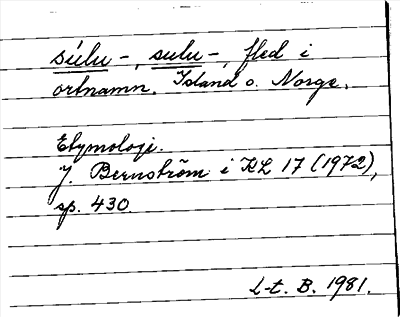 súlu-, sulu-, fled i
ortnamn. Island o. Norge.
Etymologi.
J. Bernström i KL 17 (1972),
sp. 430.
L-t. B. 1981.